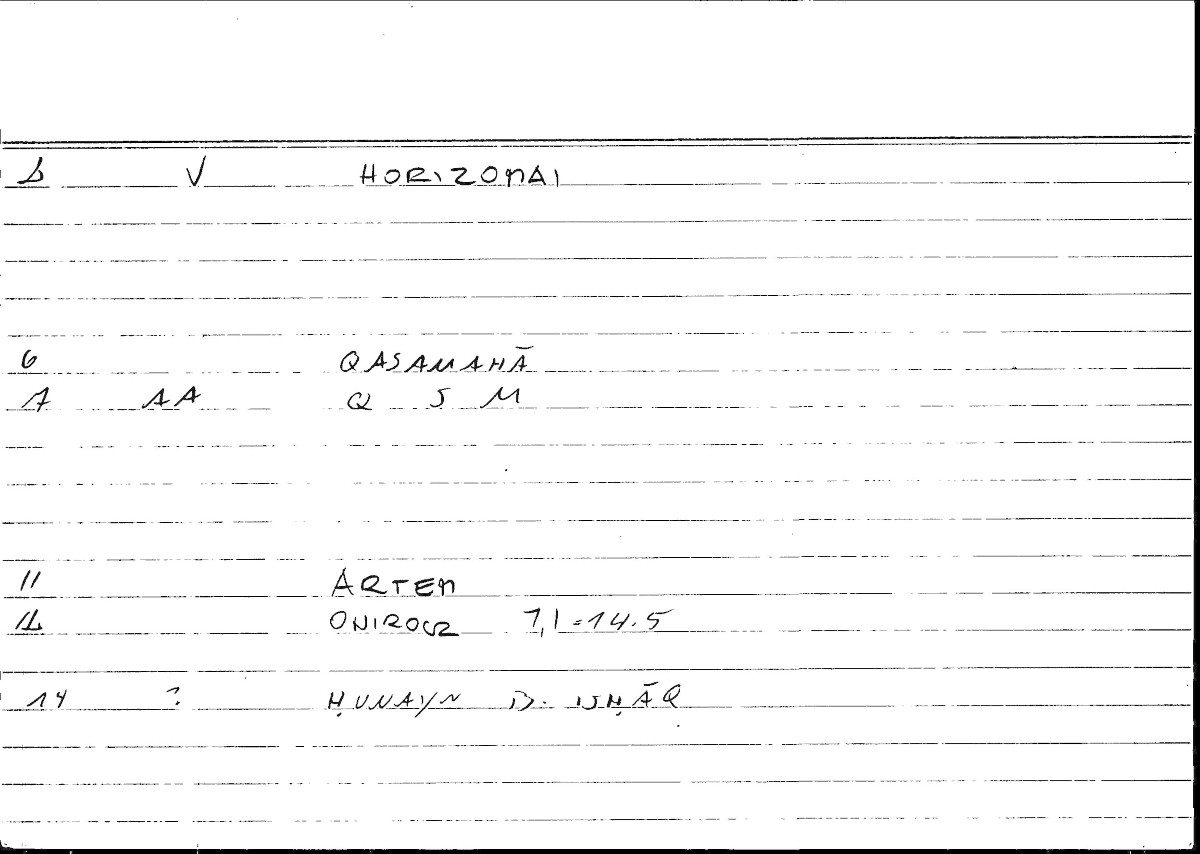 1 V HORIZOMAI
6 QASAMAHĀ
7 AA Q S M
11 ARTEM
12 ONIROCR 1,1=14.5
14 ? ḤUNAYN B. ISḤĀQ